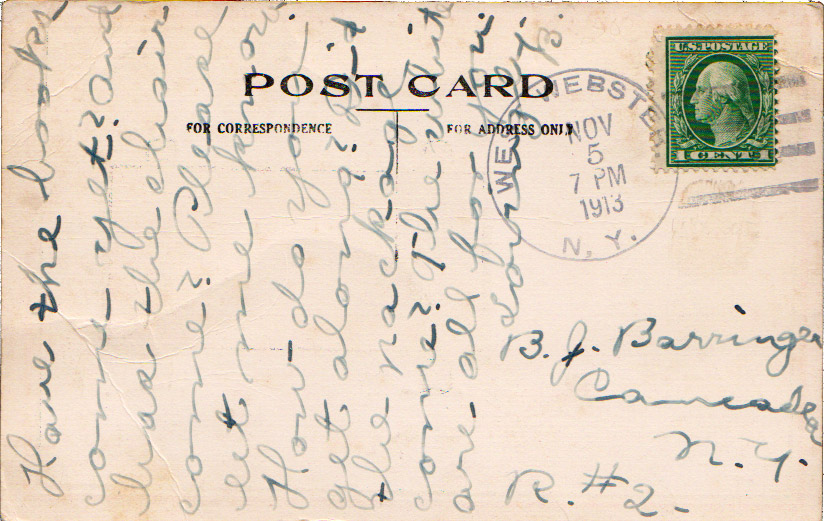 POST CARD
FOR CORRESPONDENCE
FOR ADDRESS ONLY
U.S. POSTAGE
1 CENT 1
WEST WEBSTER
NOV
5
7 PM
1913
N. Y.
Have the books
come yet? and
has the chair
come? Please
let me know.
How do you
get along? Did
the package
come? The
are all for you
Lovingly,
B.
B. J. Barringer
Caneadea
N.Y.
R. #2.